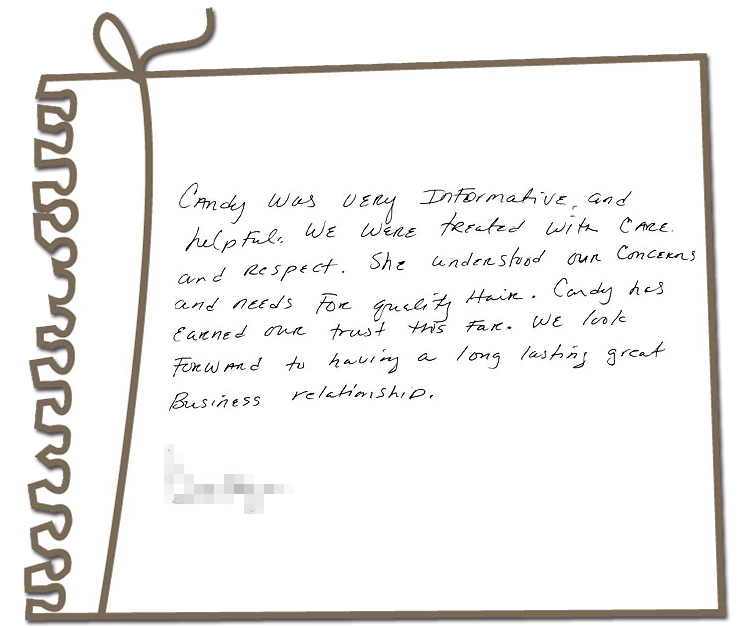 Candy was very Informative, and
helpful. We were treated with care
and respect. She understood our concerns
and needs for quality Hair. Candy has
earned our trust this far. We look
forward to having a long lasting great
Business relationship.